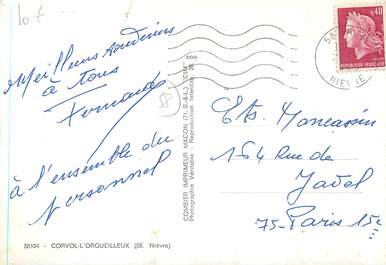 10 F
Meilleurs souvenirs
à tous
Fernande
à l'ensemble du
personnel
58104 - CORVOL-L'ORGUEILLEUX (58. Nièvre)
COMBIER IMPRIMEUR MACON (71. S-&-L.) "CIM"
Photographie Véritable - Reproduction Interdite
58
0,40
REPUBLIQUE FRANÇAISE
NIEVRE
Ets Moncassin
164 Rue de
Javel
75-Paris 15e